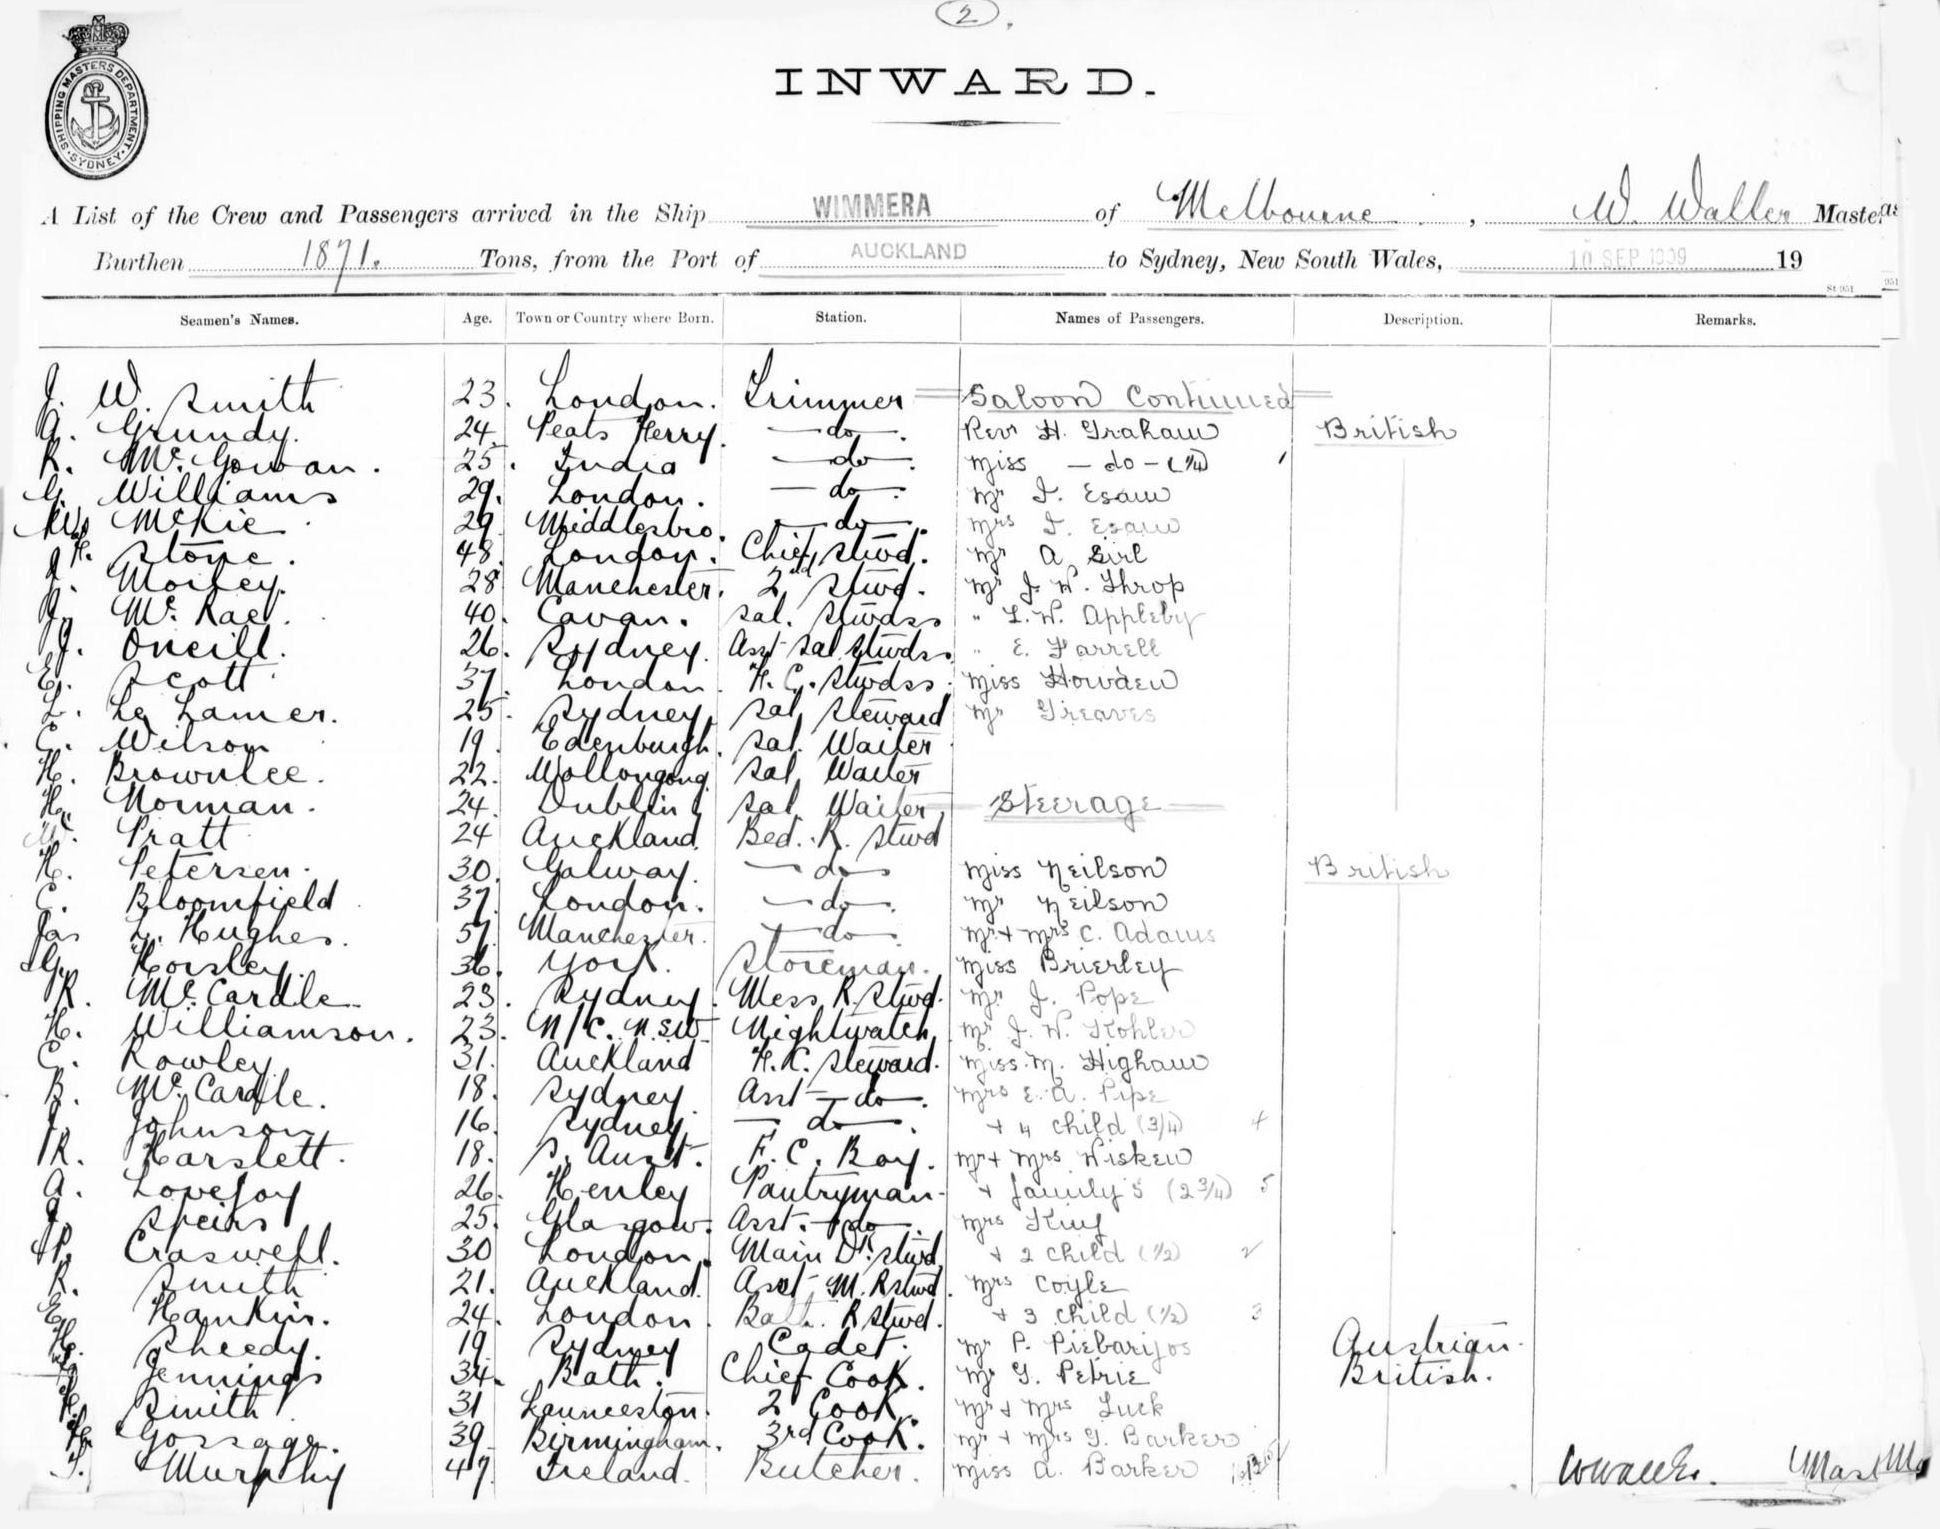 2.
SHIPPING MASTERS DEPARTMENT. SYDNEY
INWARD.
A List of the Crew and Passengers arrived in the Ship WIMMERA of Melbourne, W. Waller Master
Burthen 1871. Tons, from the Port of AUCKLAND to Sydney, New South Wales, 10 SEP 1909 19
St 951
Seamen's Names. Age. Town or Country where Born. Station. Names of Passengers. Description. Remarks.
J. W. Smith 23. London. Trimmer Saloon Continued
A. Grundy. 24. Peats Ferry. —do—. Revd H. Graham British
R. McGowan. 25. India —do—. Miss —do— (1/4)
G. Williams 29. London. —do—. Mr J. Esam
McKie 29. Middlesbro. —do—. Mrs J. Esam
H. Stone. 48. London. Chief Stwd. Mr A Girl
J. Morley. 28 Manchester. 2nd Stwd. Mr J. W. Throp
J. McRae. 40. Cavan. Sal. Stwdss " L. W. Appleby
J. Oneill. 26. Sydney. Asst Sal Stwdss " E. Farrell
E. Scott 37. London. F. C. Stwdss. Miss Howden
L. Le Lamer. 25. Sydney. Sal. Steward Mr Greaves
C. Wilson 19. Edenburgh. Sal. Waiter
H. Brownlee. 22. Wollongong. Sal. Waiter
H. Norman. 24. Dublin. Sal. Waiter Steerage
Pratt 24 Auckland. Bed. R. Stwd
H. Petersen. 30. Galway. —do— Miss Neilson British
C. Bloomfield 37. London. —do—. Mr Neilson
Jas L. Hughes. 57. Manchester. —do—. Mr + Mrs C. Adams
G. Horsley. 36. York. Storeman. Miss Brierley
R. McCardle 23. Sydney. Mess R. Stwd. Mr J. Pope
H. Williamson. 23. N/C. N.S.W Nightwatch Mr J. W. Kohler
C. Rowley 31. Auckland F. C. Steward. Miss M. Higham
B. McCardle. 18. Sydney. Asst —do—. Mrs E. A. Pipe
J. Johnson 16. Sydney —do—. + 4 child (3/4) 4
R. Harslett. 18. S. Aust. F. C. Boy. Mr + Mrs Wisken
A. Lovejoy 26. Henley Pantryman + family 5 (2 3/4) 5
J. Speirs 25. Glasgow. Asst. —do—. Mrs King
P. Craswell. 30 London. Main Dk. Stwd + 2 child (1/2) 2
R. Smith 21. Auckland. Asst M. R Stwd. Mrs Coyle
E. Hankin. 24. London. R Stwd. + 3 child (1/2) 3
H. Sheedy. 19 Sydney Cadet. Mr P. Piebarijos Austrian.
Jennings 34. Bath. Chief Cook. Mr G. Petrie British.
Smith 31 Launceston. 2 Cook. Mr + Mrs Luck
Gossage. 39 Birmingham. 3rd Cook. Mr + Mrs G. Barker
T. Murphy 47. Ireland. Butcher. Miss A. Barker